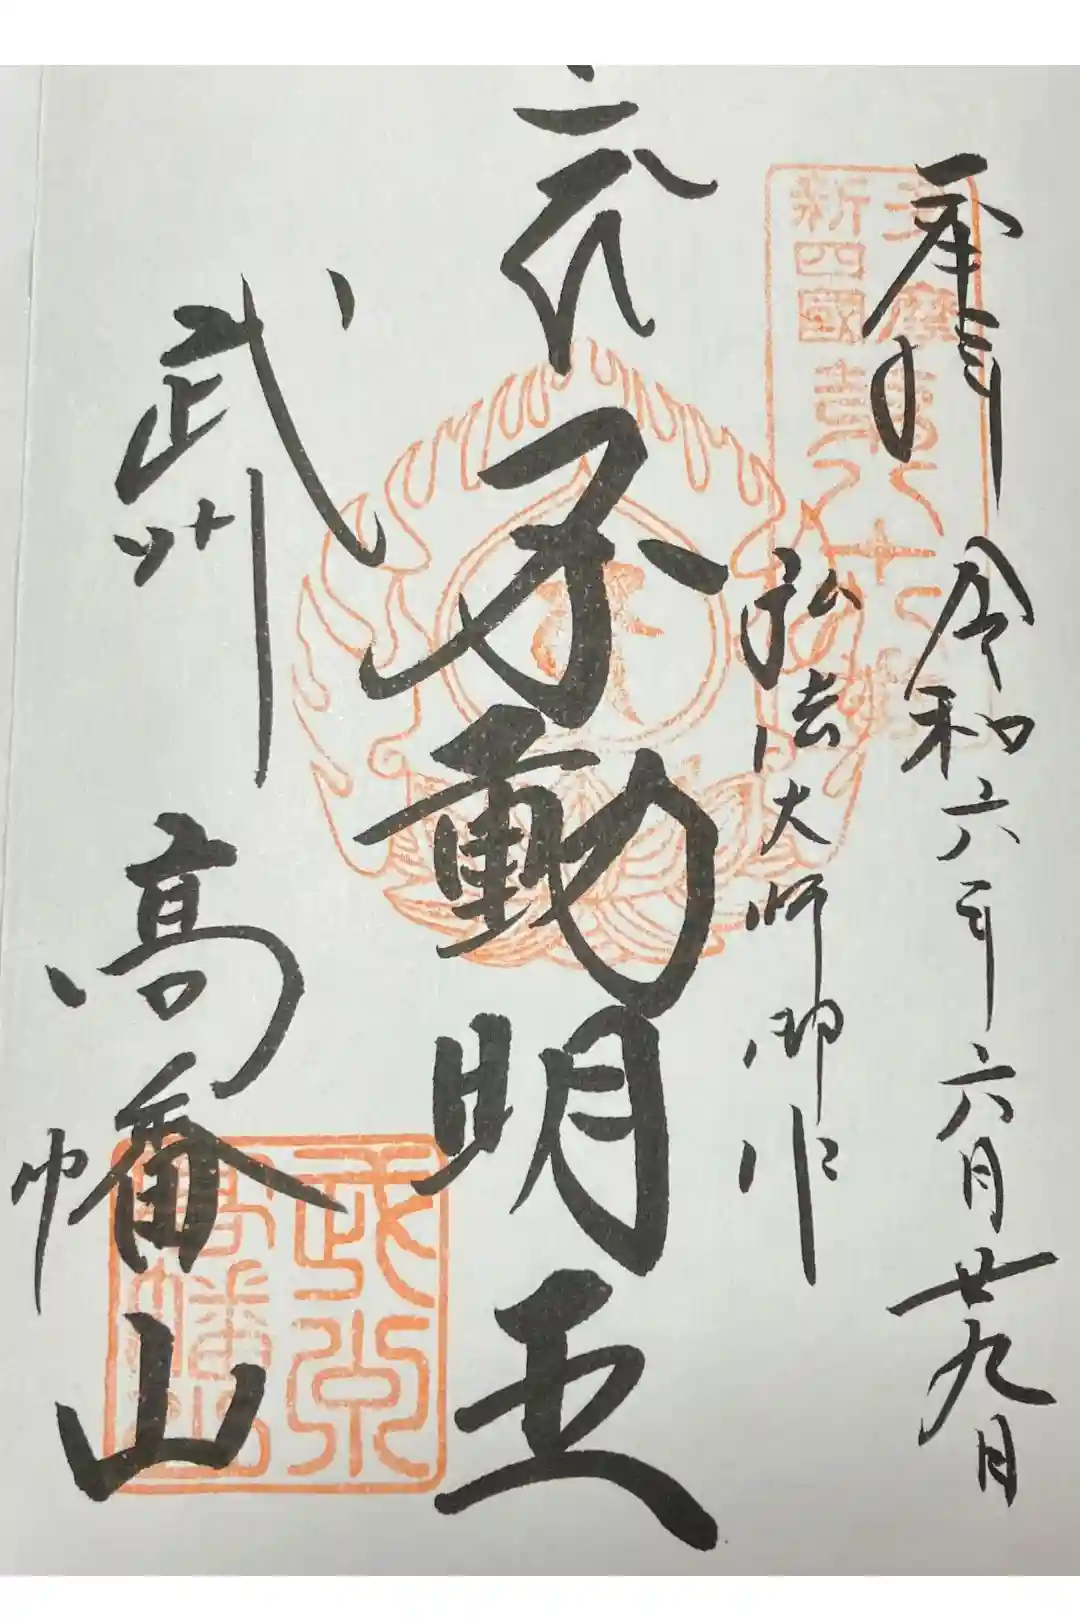 奉拝 令和六年六月廿九日
弘法大師御作
不動明王
武州 高幡山
多摩
新四國
武州
高幡山